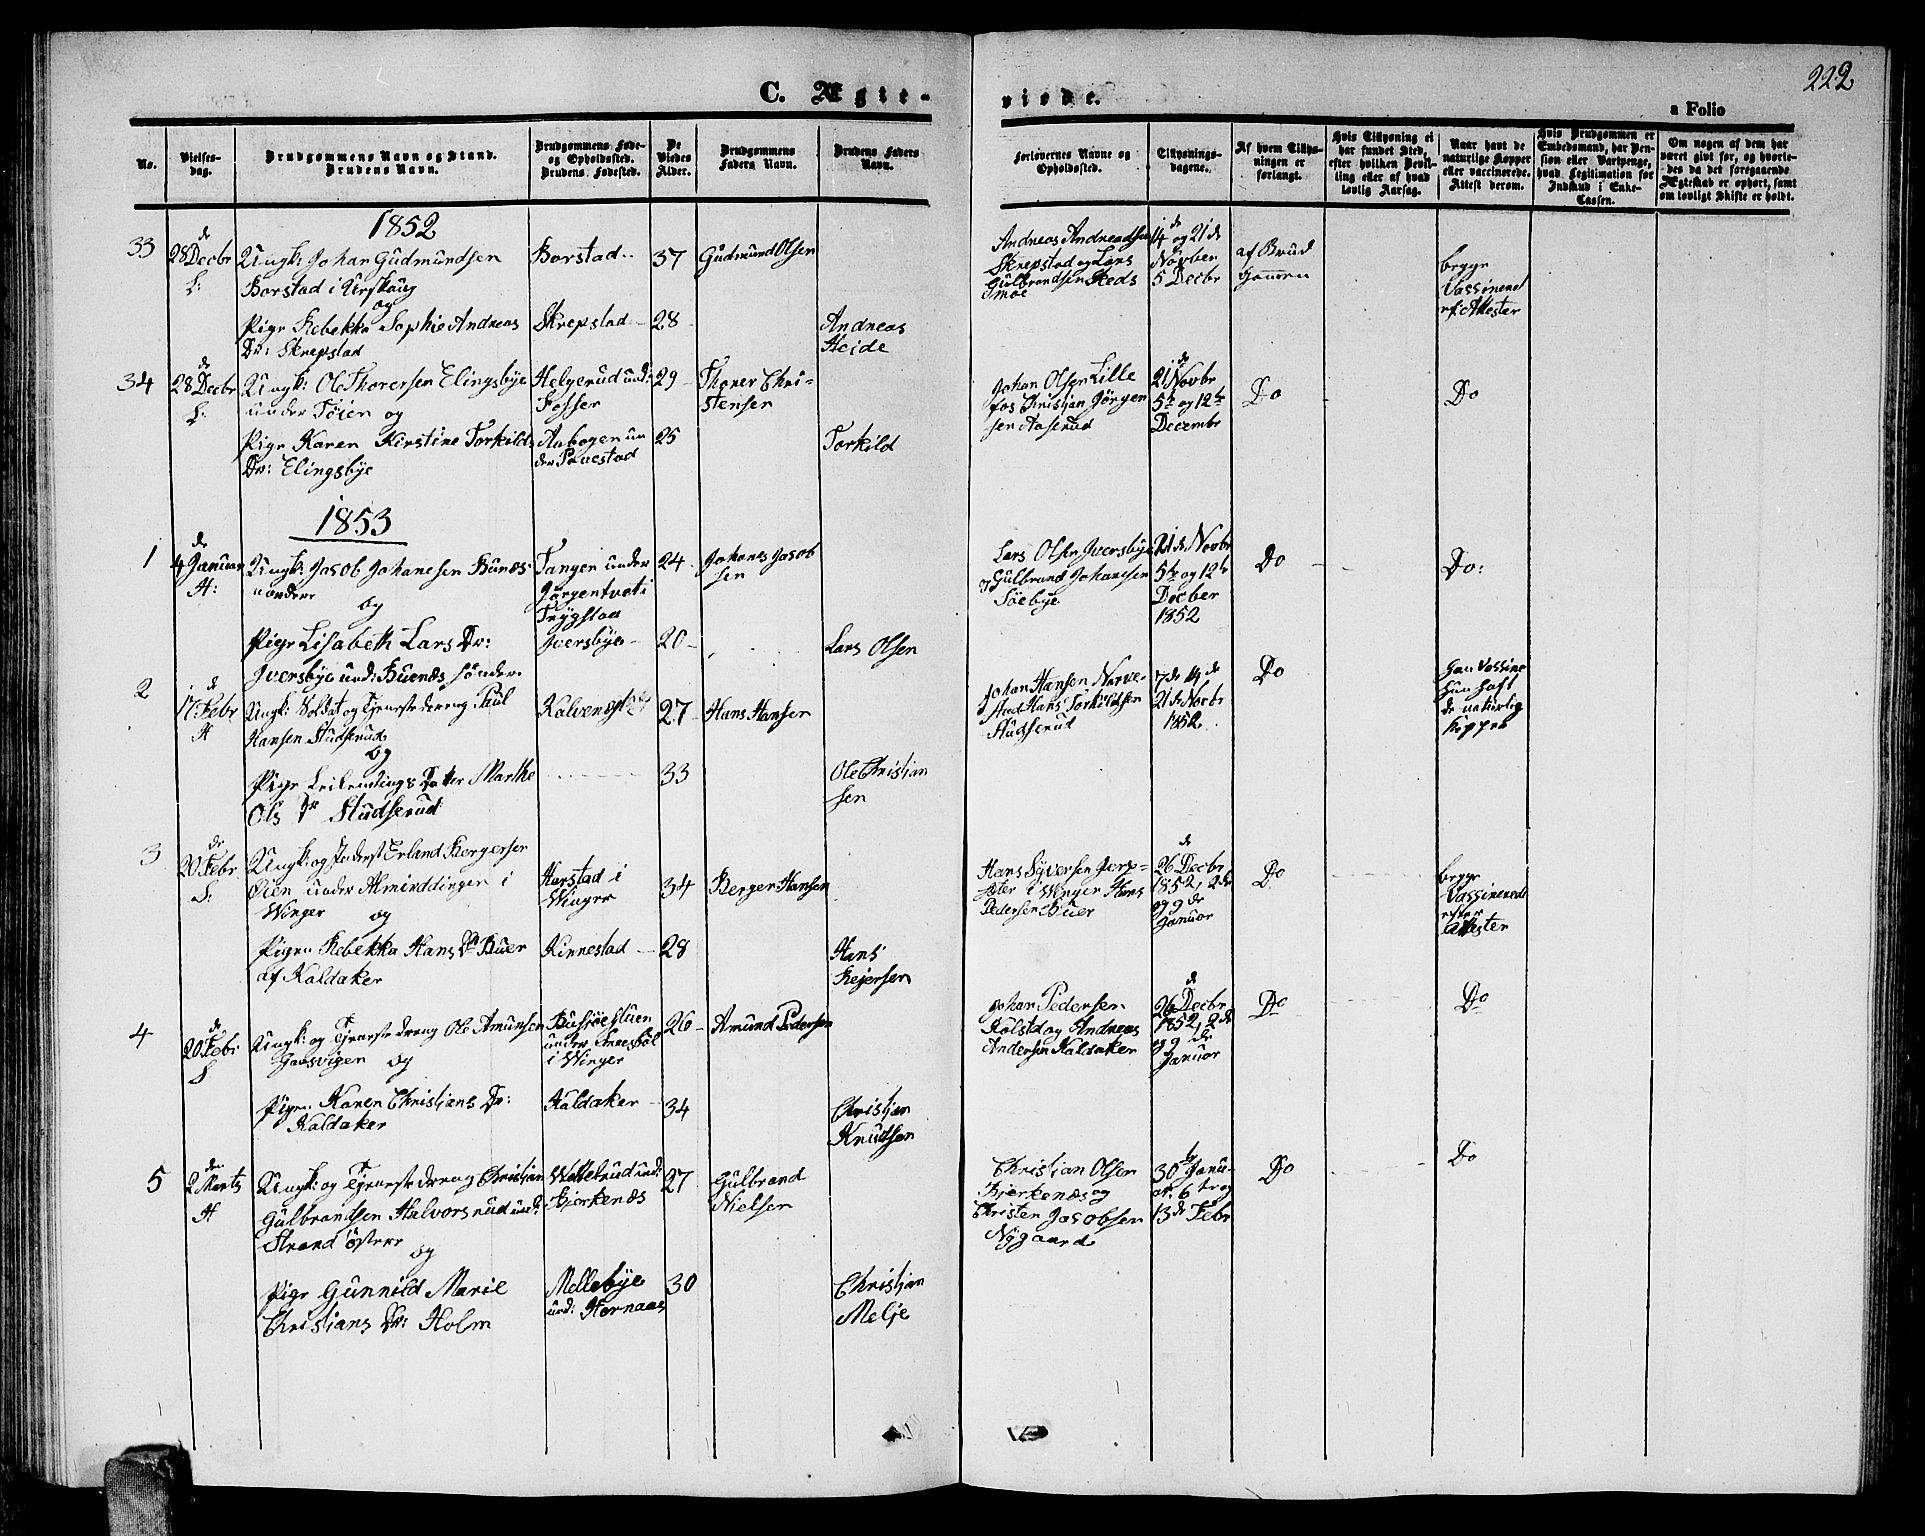 222
C. Ægte-
viede.
a Folio
No.
Vielses-
dag.
Brudgommens Navn og Stand.
Brudens Navn.
Brudgommens Føde-
og Opholdssted.
Brudens Fødested.
De
Viedes
Alder.
Brudgommens
Faders Navn.
Brudens Faders
Navn.
Forlovernes Navne og
Opholdssted.
Tillysnings-
dagene.
Af hvem Tillys-
ningen er
forlangt.
Hvis Tillysning ei
har fundet Sted,
efter hvilken Bevil-
ling eller af hvad
lovlig Aarsag.
Naar havt de
naturlige Kopper
eller vaccinerede.
Attest derom.
Hvis Brudgommen er
Embedsmand, har Pen-
sion eller Vartpenge,
hvad Legitimation for
Indskud i Enke-
Cassen.
Om nogen af dem har
været givt før, og hvorle-
des da det foregaaende
Ægteskab er ophørt, samt
om lovligt Skifte er holdt.
1852
33
28 de Decbr
L:
Ungk: Johan Gudmundsen
Borstad i Urskoug
og
Pige Rebekka Sophie Andreas
Dr: Skrepstad
Borstad
Skrepstad
37
28
Gudmund Olsen
Andreas
Heide
Andreas Andreadsen
Skrepstad og Lars
Gulbrandsen Steds
moe
14 de og 21 de
Novber
5 Decbr
af Brud
gommen
begge
Vassinered
Attester
34
28 de Decbr
L:
Ungk: Ole Thoresen Elingsbye
under Töien og
Pige Karen Kirstine Torkilds
Dr: Elingsbye
Helgerud und:
Fosser
Aabogen un
der
29
25
Thorer Chri-
stensen
Torkild
Johan Olsen Lille
fos Christian Jörgen
sen Aaserud
21 de Novbr
5te og 12te
Decembr
Do
Do
1853
1
4 de Januar
H:
Ungk: Jacob Johanesen Bunæs
nordere
og
Pige Lisabeth Lars Dr:
Iversbye und: Buenæs söndere
Tangen under
Trygstad
Iversbye
24
20
Johanes Jacob
sen
Lars Olsen
Lars Olsen Iversbye
og Gulbrand Johannsen
Söebye
21 de Novbr
5te og 12te
Decber
1852
Do
Do:
2
17 de Febr
H
Ungk: Soldat og Tjenestedreng Paul
Hansen Studserud
og
Pige Marthe
Ols Dr Studserud
27
33
Hans Hansen
Ole Christian
sen
Johan Hansen Norve-
stad Hans Torkildsen
Studserud
7 de 14 de
21 de Novbr
1852
Do
han Vassine
hun haft
de naturlig
Kopper
3
20 de Febr
L:
Ungk: og Erland Bergersen
Öien under i
Winger
og
Pigen Rebekka Hans Dr Buer
af Kaldaker
Harstad i
Winger
Kinnestad
34
28
Berger Hansen
Hans
Rejersen
Hans Syversen
i Winger Hans
Pedersen Buer
26 de Decbr
1852, 2 de
og 9 de
Januar
Do
begge
Vassinerede
efter
Attester
4
20 de Febr
L
Ungk: og Tjenestedreng Ole Amunsen
Gaasvigen
og
Pigen Karen Christians Dr:
Kaldaker
under
i Winger
Kaldaker
26
34
Amund Pedersen
Christian
Knudsen
Johan Pedersen
Kolstd og Andreas
Andersen Kaldaker
26 de Decbr
1852, 2 de
og 9 de
Januar
Do
Do
5
2 den Martz
H
Ungk: og Tjenestedreng Christian
Gulbrandsen Halvorsrud und:
Strand östere
og
Pige Gunnild Marie
Christians Dr: Holm
und:
Bjerkenæs
Mellebye
und: Hornaas
27
30
Gulbrand
Nielsen
Christian
Melje
Christian Olsen
Bjerkenæs og
Christen Jacobsen
Nygaard
30te Janu-
ar. 6te og
13 de Febr
Do
Do